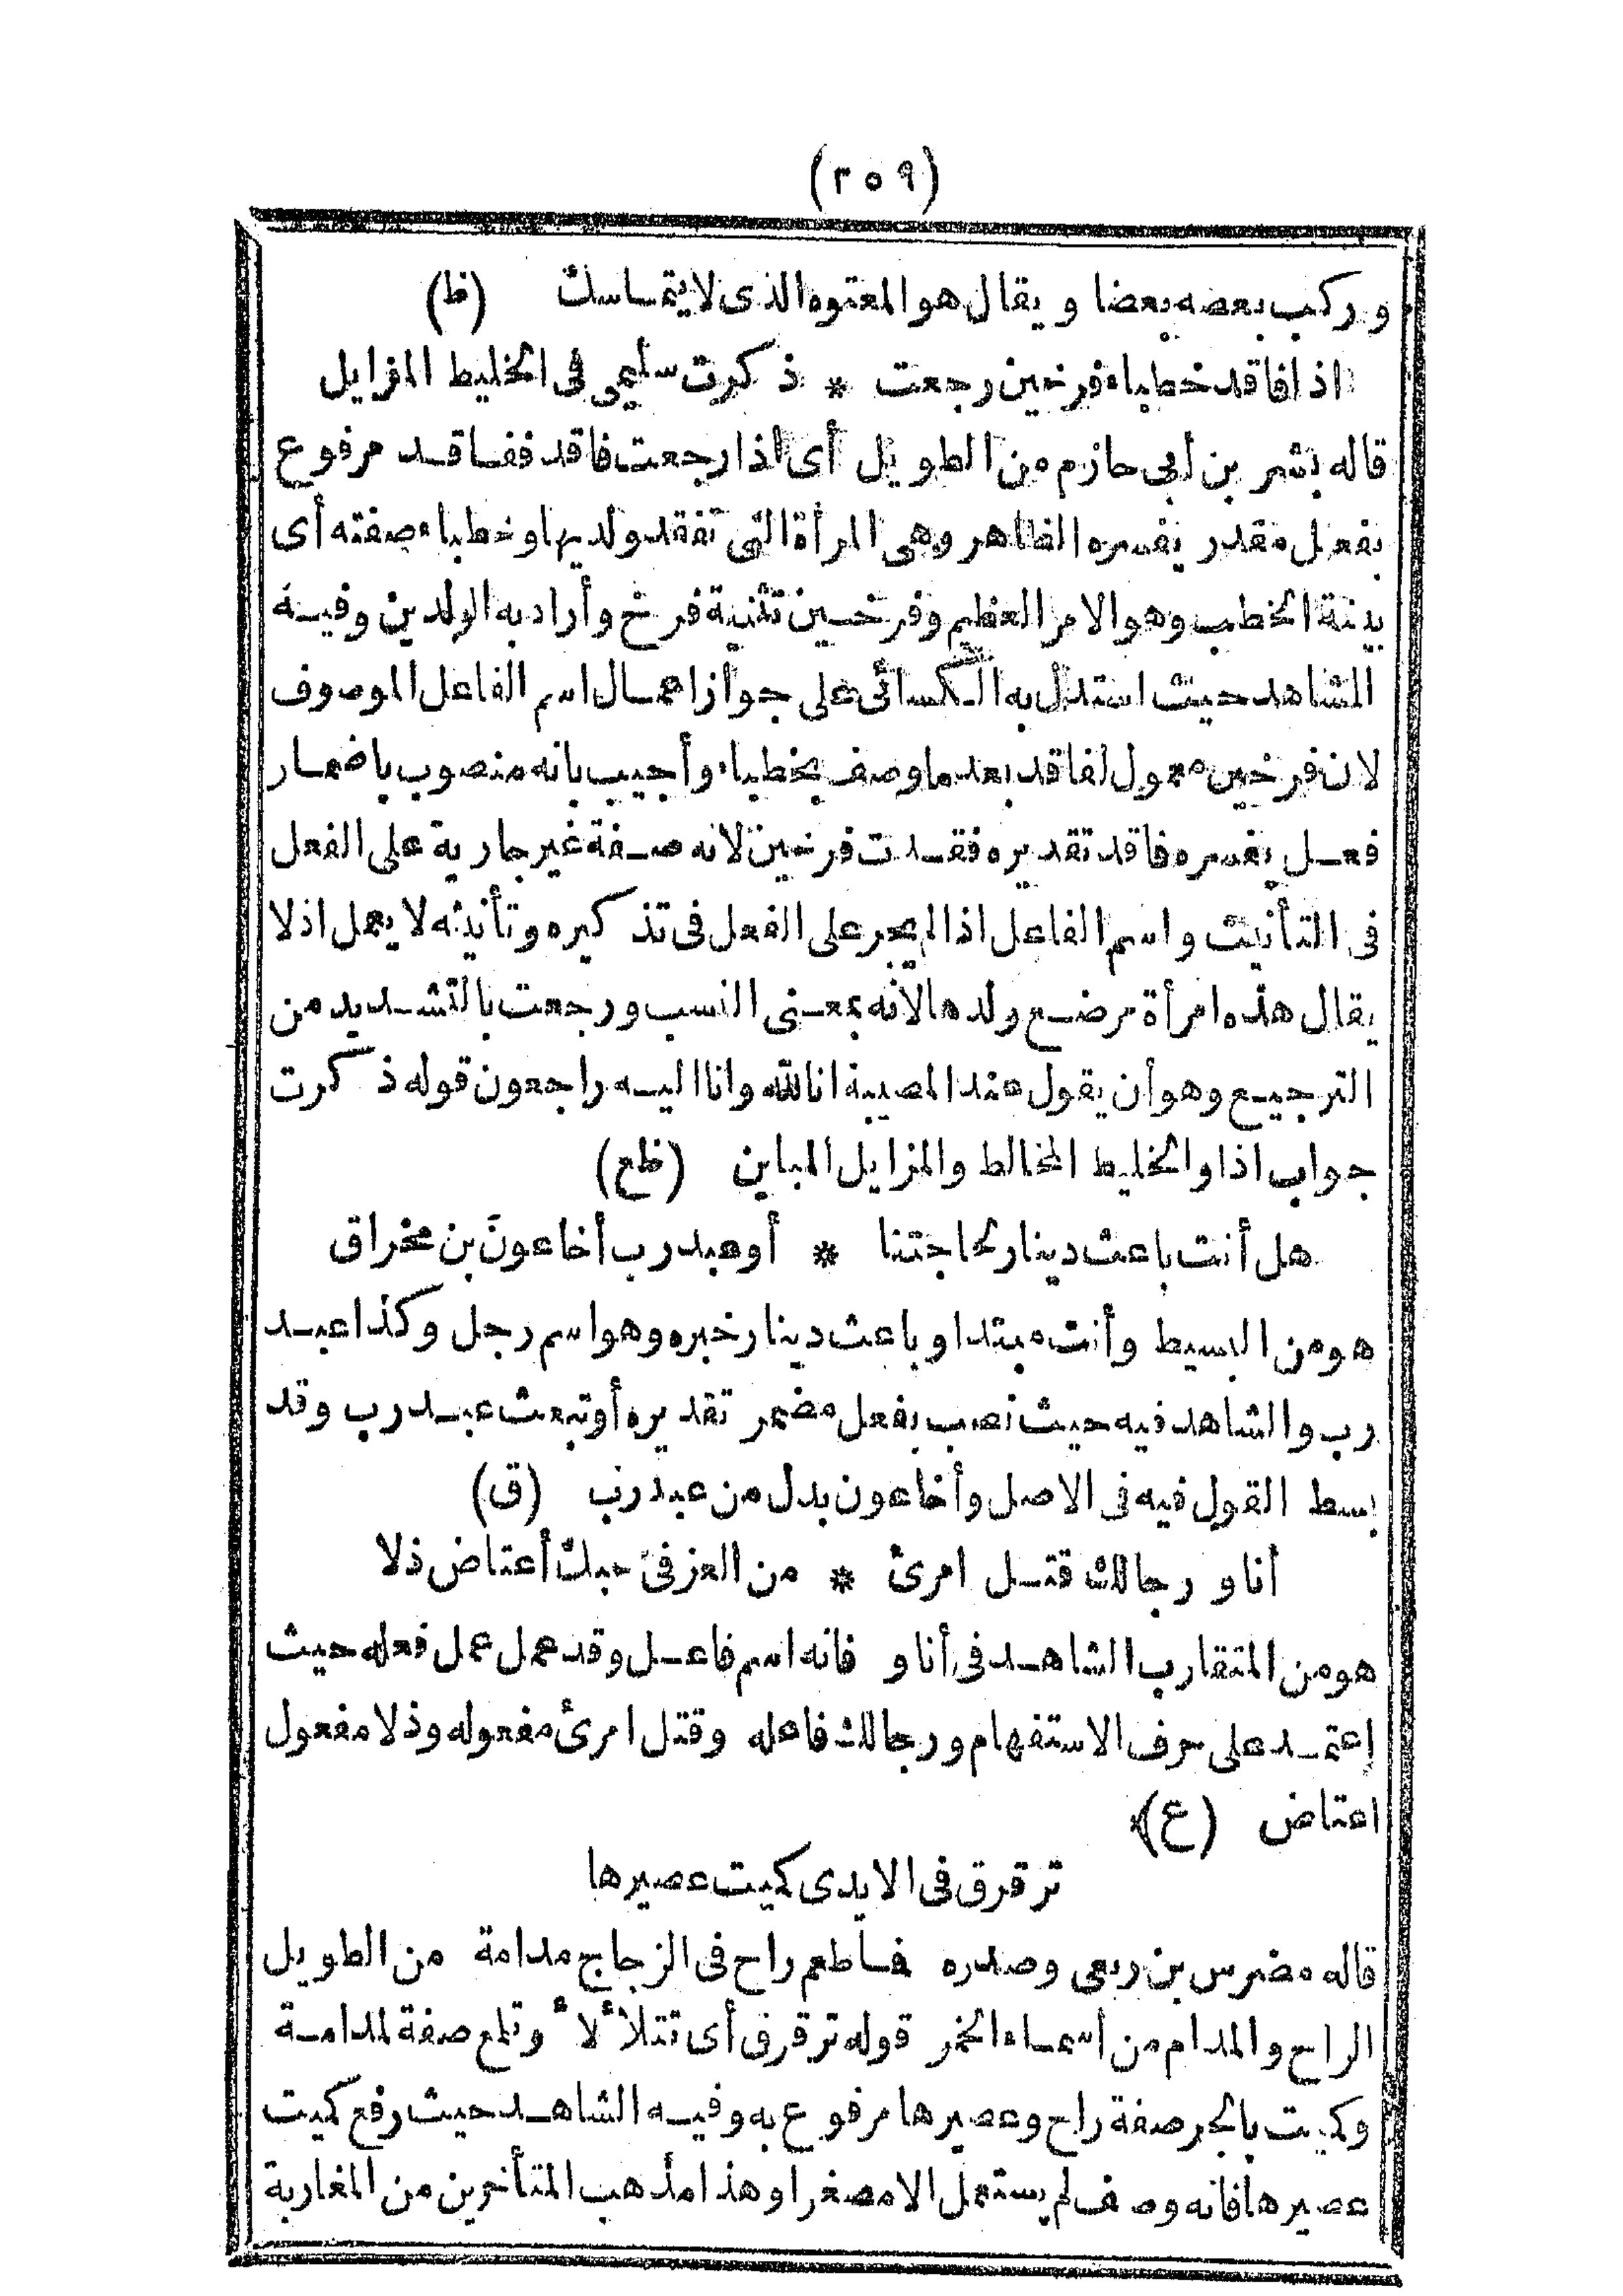 (٢٥٩)
وركب بعضه بعضا ويقال هو المعتوه الذى لا يتماسك (ظ)
اذا فاقد خطباء فرخين رجعت * ذكرت سليمى فى الخليط المزايل
قاله بشر بن أبى حازم من الطويل أى اذا رجعت فاقد ففاقد مرفوع
بفعل مقدر يفسره الظاهر وهى المرأة التى تفقد ولديها وخطباء صفته أى
بينة الخطب وهو الامر العظيم وفرخين تثنية فرخ وأراد به الولدين وفيه
الشاهد حيث استدل به الكسائى على جواز اعمال اسم الفاعل الموصوف
لان فرخين معمول لفاقد بعد ما وصف بخطباء وأجيب بانه منصوب باضمار
فعل يفسره فاقد تقديره فقدت فرخين لانه صفة غير جارية على الفعل
فى التأنيث واسم الفاعل اذا لم يجر على الفعل فى تذكيره وتأنيثه لا يعمل اذ لا
يقال هذه امرأة مرضع ولدها لانه بمعنى النسب ورجعت بالتشديد من
الترجيع وهو أن يقول عند المصيبة انا لله وانا اليه راجعون قوله ذكرت
جواب اذا والخليط المخالط والمزايل المباين (ظع)
هل أنت باعث دينار لحاجتنا * أو عبد رب أخا عون بن مخراق
هو من البسيط وأنت مبتدا وباعث دينار خبره وهو اسم رجل وكذا عبد
رب والشاهد فيه حيث نصب بفعل مضمر تقديره أو تبعث عبد رب وقد
بسط القول فيه فى الاصل وأخا عون بدل من عبد رب (ق)
أناو رجالك قتل امرئ * من العز فى حبك أعتاض ذلا
هو من المتقارب الشاهد فى أناو فانه اسم فاعل وقد عمل عمل فعله حيث
إعتمد على حرف الاستفهام ورجالك فاعله وقتل امرئ مفعوله وذلا مفعول
اعتاض (ع)
ترقرق فى الايدى كميت عصيرها
قاله مضرس بن ربعى وصدره فما طعم راح فى الزجاج مدامة من الطويل
الراح والمدام من أسماء الخمر قوله ترقرق أى تتلألأ وتلمع صفة لمدامة
وكميت بالجر صفة راح وعصيرها مرفوع به وفيه الشاهد حيث رفع كميت
عصيرها فانه وصف لم يستعمل الا مصغرا وهذا مذهب المتأخرين من المغاربة